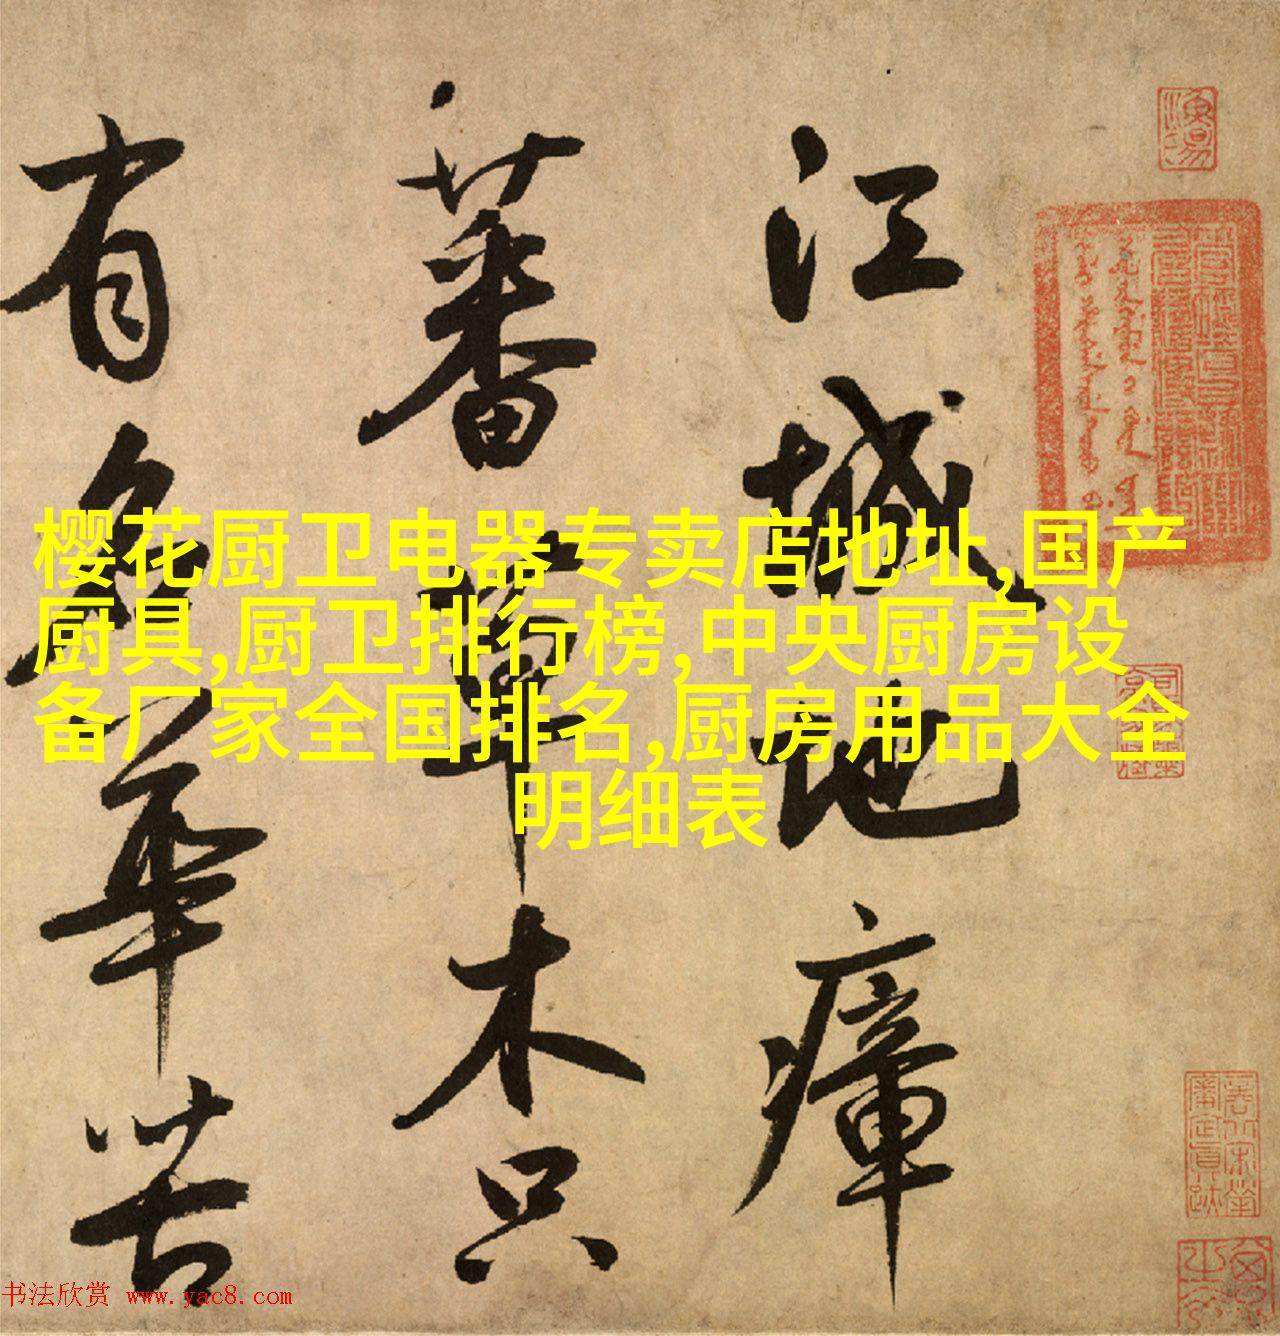 江城地瘴
蕃草木只
有名華苦
樱花厨卫电器专卖店地址,国产
厨具,厨卫排行榜,中央厨房设
备厂家全国排名,厨房用品大全
明细表
书法欣赏 www.yac8.com